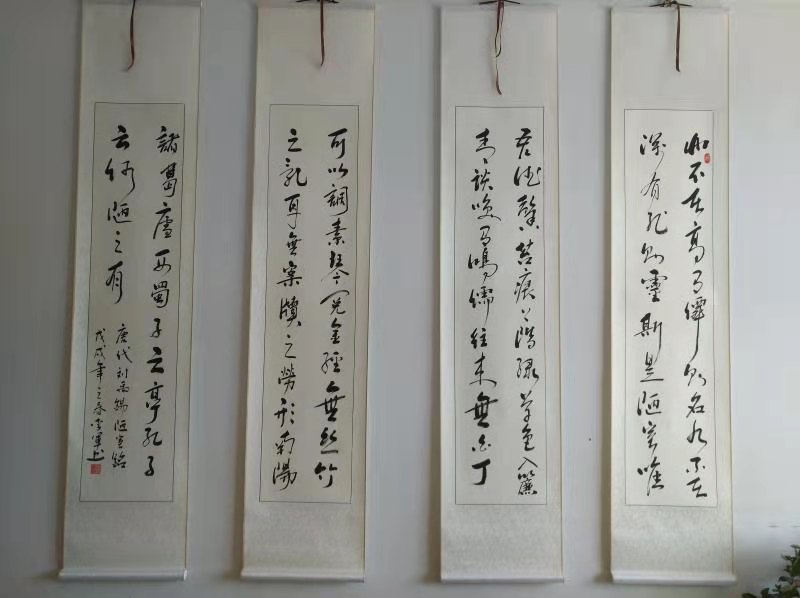 山不在高有僊則名水不在
深有龍則靈斯是陋室唯
吾德馨苔痕上階綠草色入簾
青談笑有鴻儒往來無白丁
可以調素琴閱金經無絲竹
之亂耳無案牘之勞形南陽
諸葛廬西蜀子云亭孔子
云何陋之有
唐代劉禹錫陋室銘
戊戌年之春